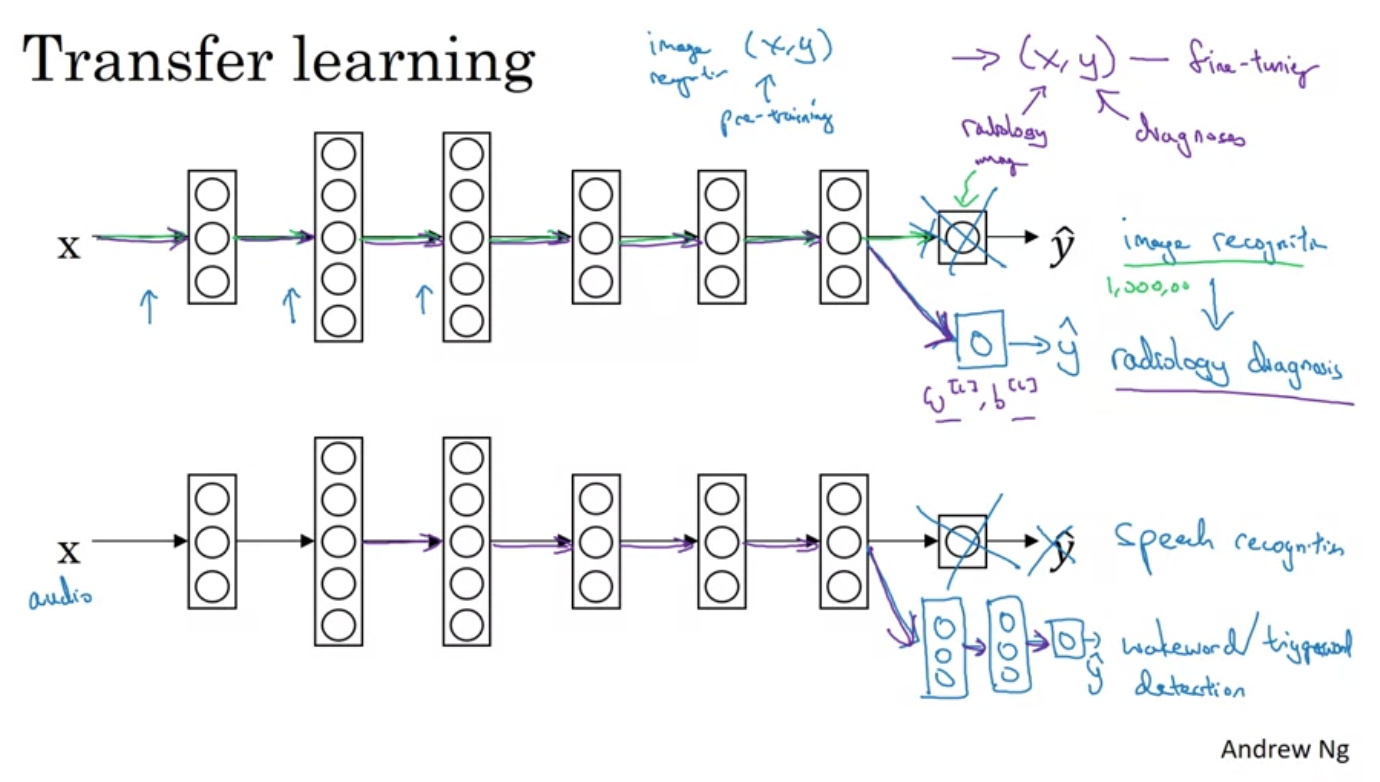 Transfer learning
image (x,y)
recognition
pre-training
→ (x,y) — fine-tuning
radiology
image
diagnoses
x
ŷ
image recognition
1,000,00
ŷ
radiology diagnosis
w[L], b[L]
x
audio
ŷ
Speech recognition
ŷ
wakeword/triggerword
detection
Andrew Ng